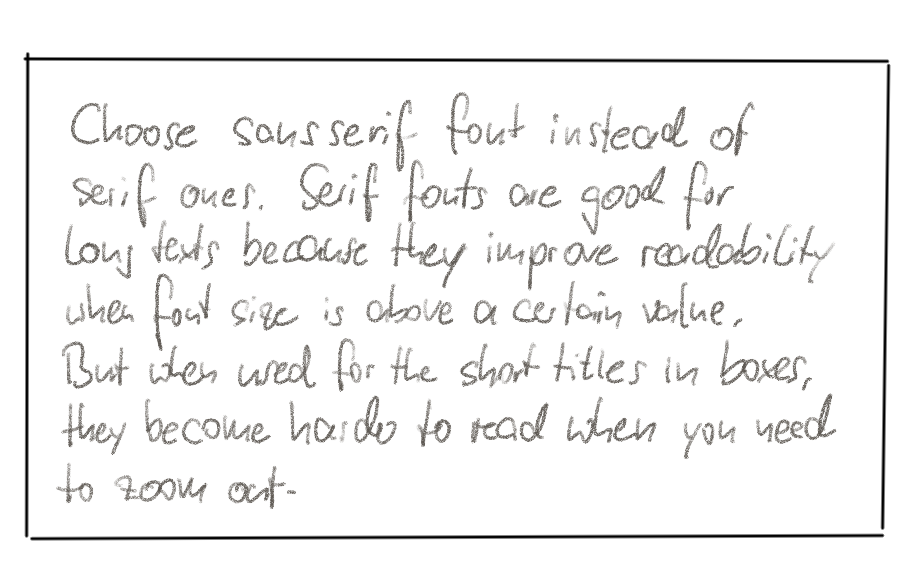 Choose sans serif font instead of
serif ones. Serif fonts are good for
long texts because they improve readability
when font size is above a certain value.
But when used for the short titles in boxes,
they become harder to read when you need
to zoom out.